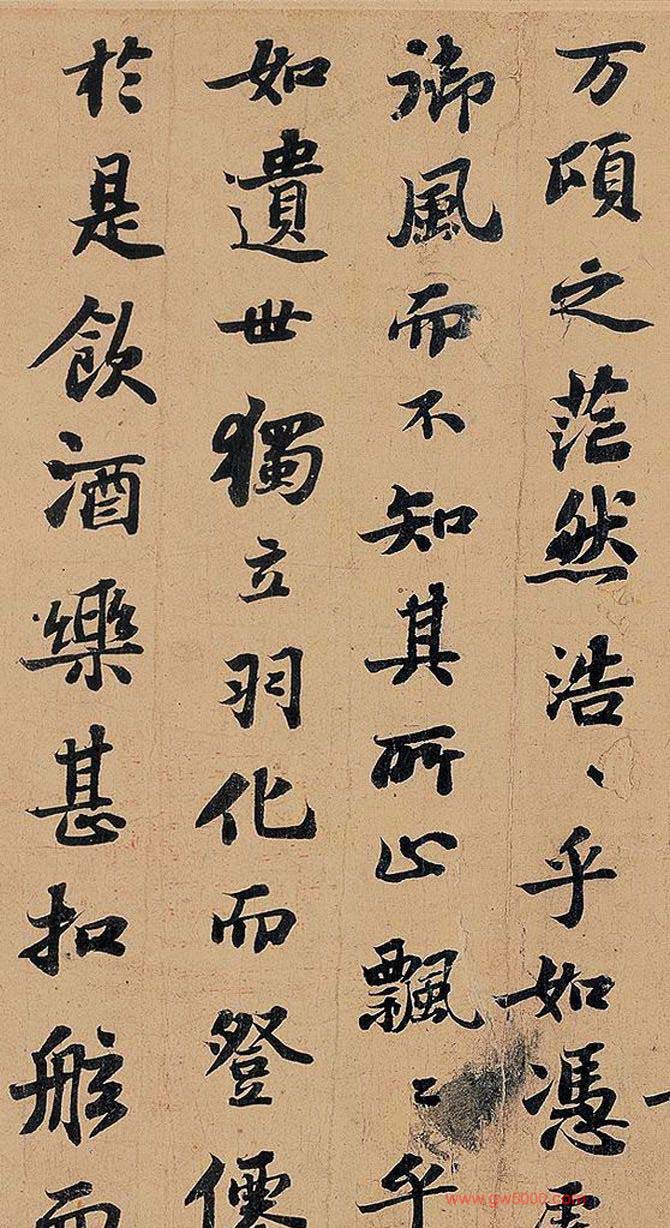 万頃之茫然浩、乎如憑
御風而不知其所止飄〻乎
如遺世獨立羽化而登僊
於是飲酒樂甚扣舷而